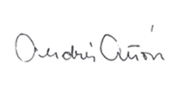 Andrés Añón